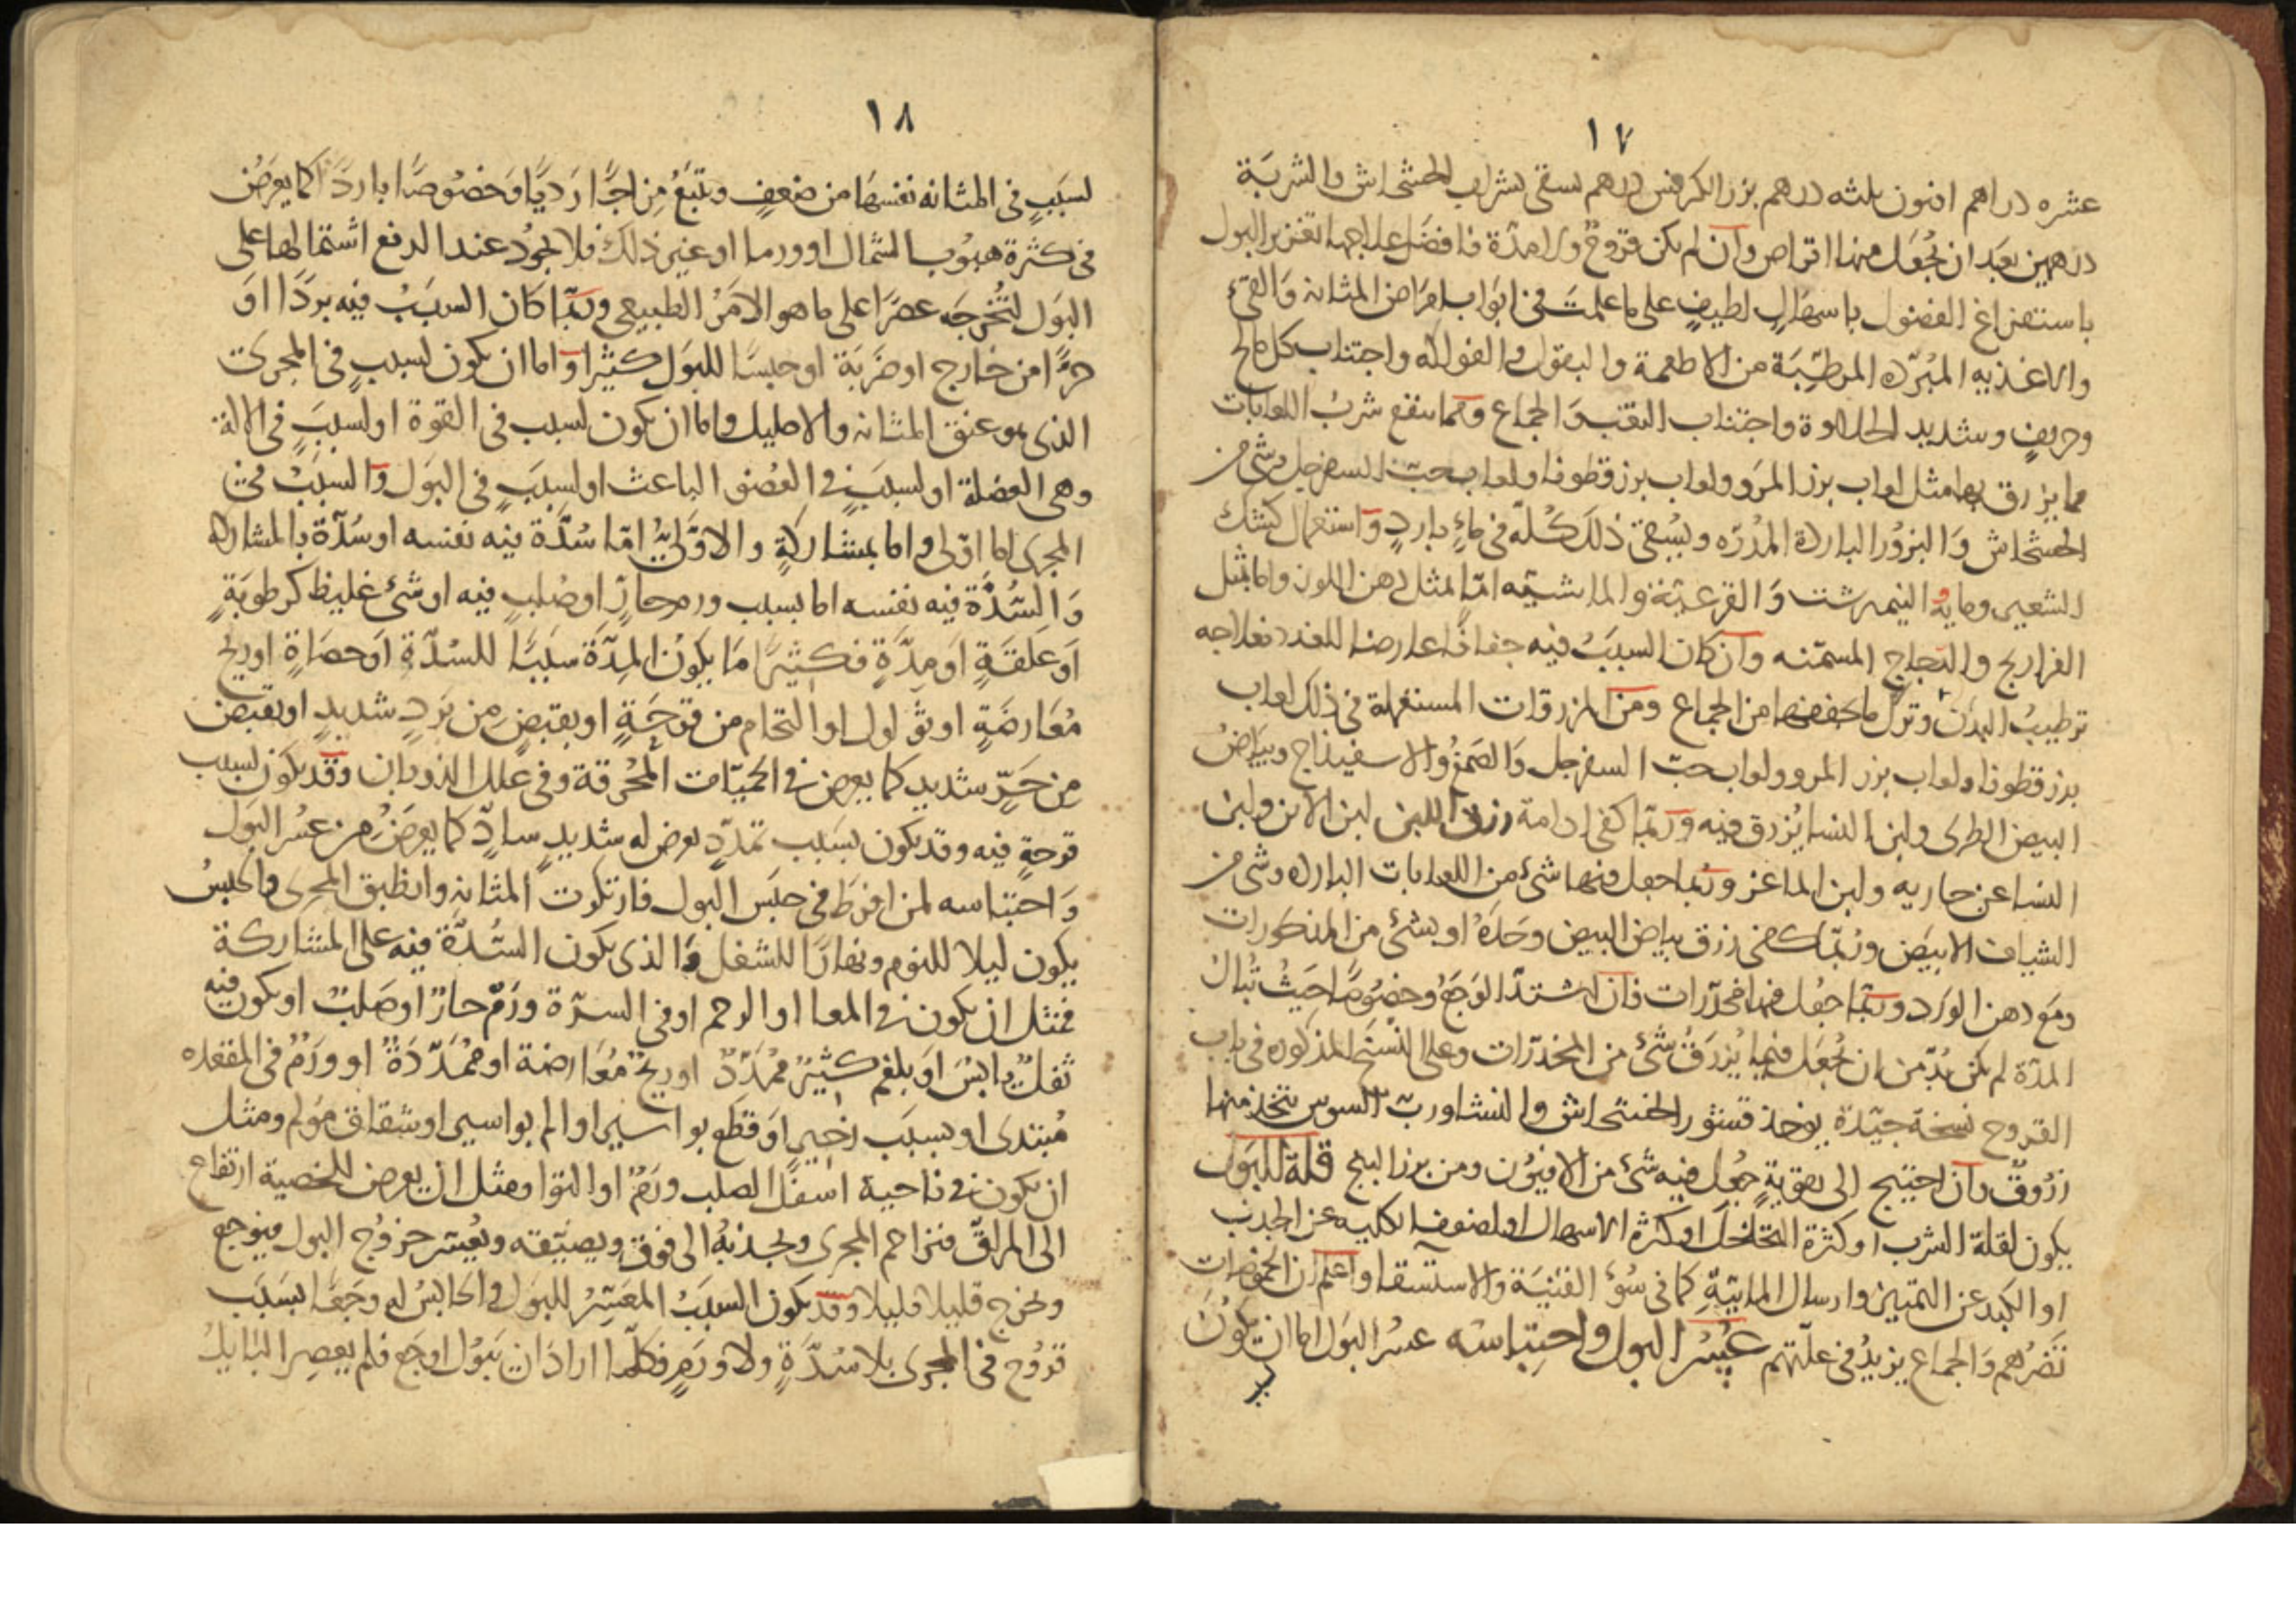 ١٧
عشره دراهم افيون ثلثه درهم بزر الكرفس درهم يسقى بشراب الخشخاش والشربة
درهمين بعد ان يجعل منها اقراص وان لم يكن قروح ولا مدة فافضل علاجها تغزير البول
باستفراغ الفضول باسهال لطيف على ما علمت في ابواب امراض المثانه والقئ
والاغذيه المبرده المرطبة من الاطعمة والبقول والفواكه واجتناب كل مالح
وحريف وشديد الحلاوة واجتناب التعب والجماع ومما ينفع شرب اللعابات
مما يزرق بها مثل لعاب بزر المرو ولعاب بزر قطونا ولعاب حب السفرجل وشئ من
الخشخاش والبزور البارده المدرة ويسقى ذلك كله في ماء بارد واستعمال كشك
الشعير ومايه والنيمرشت والقرعية والماشيه اما بمثل دهن اللوز واما بمثل
الفراريج والدجاج المسمنه وان كان السبب فيه جفافا عارضا للغدد فعلاجه
ترطيب البدن وترك ما يجففها من الجماع ومن المزروقات المستعملة في ذلك لعاب
بزر قطونا ولعاب بزر المرو ولعاب حب السفرجل والصمغ والاسفيذاج وبياض
البيض الطرى ولبن النسا يزرق فيه وربما كفى ادامة زرق اللبن لبن الاتن ولبن
النسا عن جاريه ولبن الماعز وربما جعل فيها شئ من اللعابات البارده وشئ من
الشياف الابيض وربما كفى زرق بياض البيض وحده او بشئ من المذكورات
ومع دهن الورد وربما جعل فيها مخدرات فان اشتد الوجع وخصوصا حيث تبال
المدة لم يكن بد من ان يجعل فيما يزرق شئ من المخدرات وعلى النسخ المذكوره في باب
القروح نسخة جيدة يوخذ قشور الخشخاش والنشا ورب السوس يتخذ منها
زروق وان احتيج الى تقوية جعل فيه شئ من الافيون ومن بزر البنج قلة البول
يكون لقلة الشرب او كثرة التخلخل او كثرة الاسهال او لضعف الكليه عن الجذب
او الكبد عن التمييز وارسال المائية كما في سوء القنية والاستسقا واعلم ان الحموضات
تضرهم والجماع يزيد في علتهم عسر البول واحتباسه عسر البول اما ان يكون
١٨
لسبب في المثانه نفسها من ضعف ويتبع مزاجا رديا وخصوصا باردا كما يعرض
في كثرة هبوب الشمال او ورما او غير ذلك فلا يجود عند الدفع اشتمالها على
البول لتخرجه عصرا على ما هو الامر الطبيعي وربما كان السبب فيه بردا او
حرا من خارج او ضربة او حبسا للبول كثيرا واما ان يكون لسبب في المجرى
الذى هو عنق المثانه والاحليل واما ان يكون لسبب في القوة او لسبب في الالة
وهي العضلة او لسبب في العضو الباعث او لسبب في البول والسبب في
المجرى اما اولى واما بمشاركة والاولى اما سدة فيه نفسه او سدة بالمشاركه
والسدة فيه نفسه اما بسبب ورم حار او صلب فيه او شئ غليظ كرطوبة
او علقة او مدة فكثيرا ما يكون المدة سببا للسدة او حصاة او ريح
معارضة او ثؤلول او التحام من قرحة او بقبض من برد شديد او بقبض
من حر شديد كما يعرض في الحميات المحرقة وفي علل الذوبان وقد يكون لسبب
قرحة فيه وقد يكون بسبب تمدد يعرض له شديد ساد كما يعرض من عسر البول
واحتباسه لمن افرط في حبس البول فارتكزت المثانه وانطبق المجرى واكلبس
يكون ليلا للنوم ونهارا للشغل والذى يكون السدة فيه على المشاركة
فمثل ان يكون في المعا او الرحم او في السرة ورم حار او صلب او يكون فيه
ثفل يابس او بلغم كثير ممدد او ريح معارضة او ممددة او ورم في المقعده
مبتدى او بسبب زحير او قطع بواسير او الم بواسير او شقاق مولم ومثل
ان يكون في ناحية اسفل الصلب ورم او التوا ومثل ان يعرض للخصية ارتفاع
الى المراق فتزاحم المجرى وتجذبه الى فوق ويضيقه ويعسر خروج البول فيوجع
ويخرج قليلا قليلا وقد يكون السبب المعسر للبول والحابس له وجعا بسبب
قروح في المجرى بلا سدة ولا ورم فكلما اراد ان يبول اوجع فلم يعصر البايل